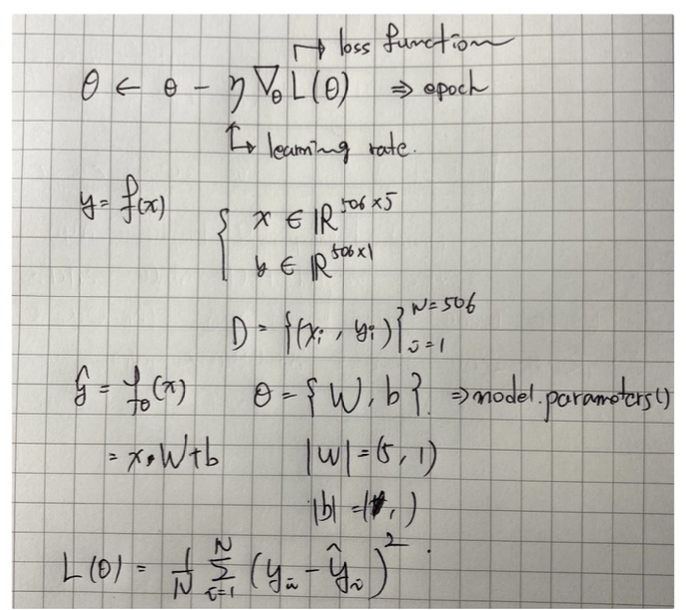 ↱ loss function
θ ← θ - η ∇_θ L(θ) ⇒ epoch
↳ learning rate.
y = f(x) { x ∈ ℝ^{506×5}
y ∈ ℝ^{506×1}
D = {(x_i, y_i)}_{i=1}^{N=506}
ŷ = f_θ(x) θ = {W, b}. ⇒ model.parameters()
= x·W+b |W| = (5, 1)
|b| = (1, )
L(θ) = 1/N Σ_{i=1}^{N} (y_i - ŷ_i)^2.